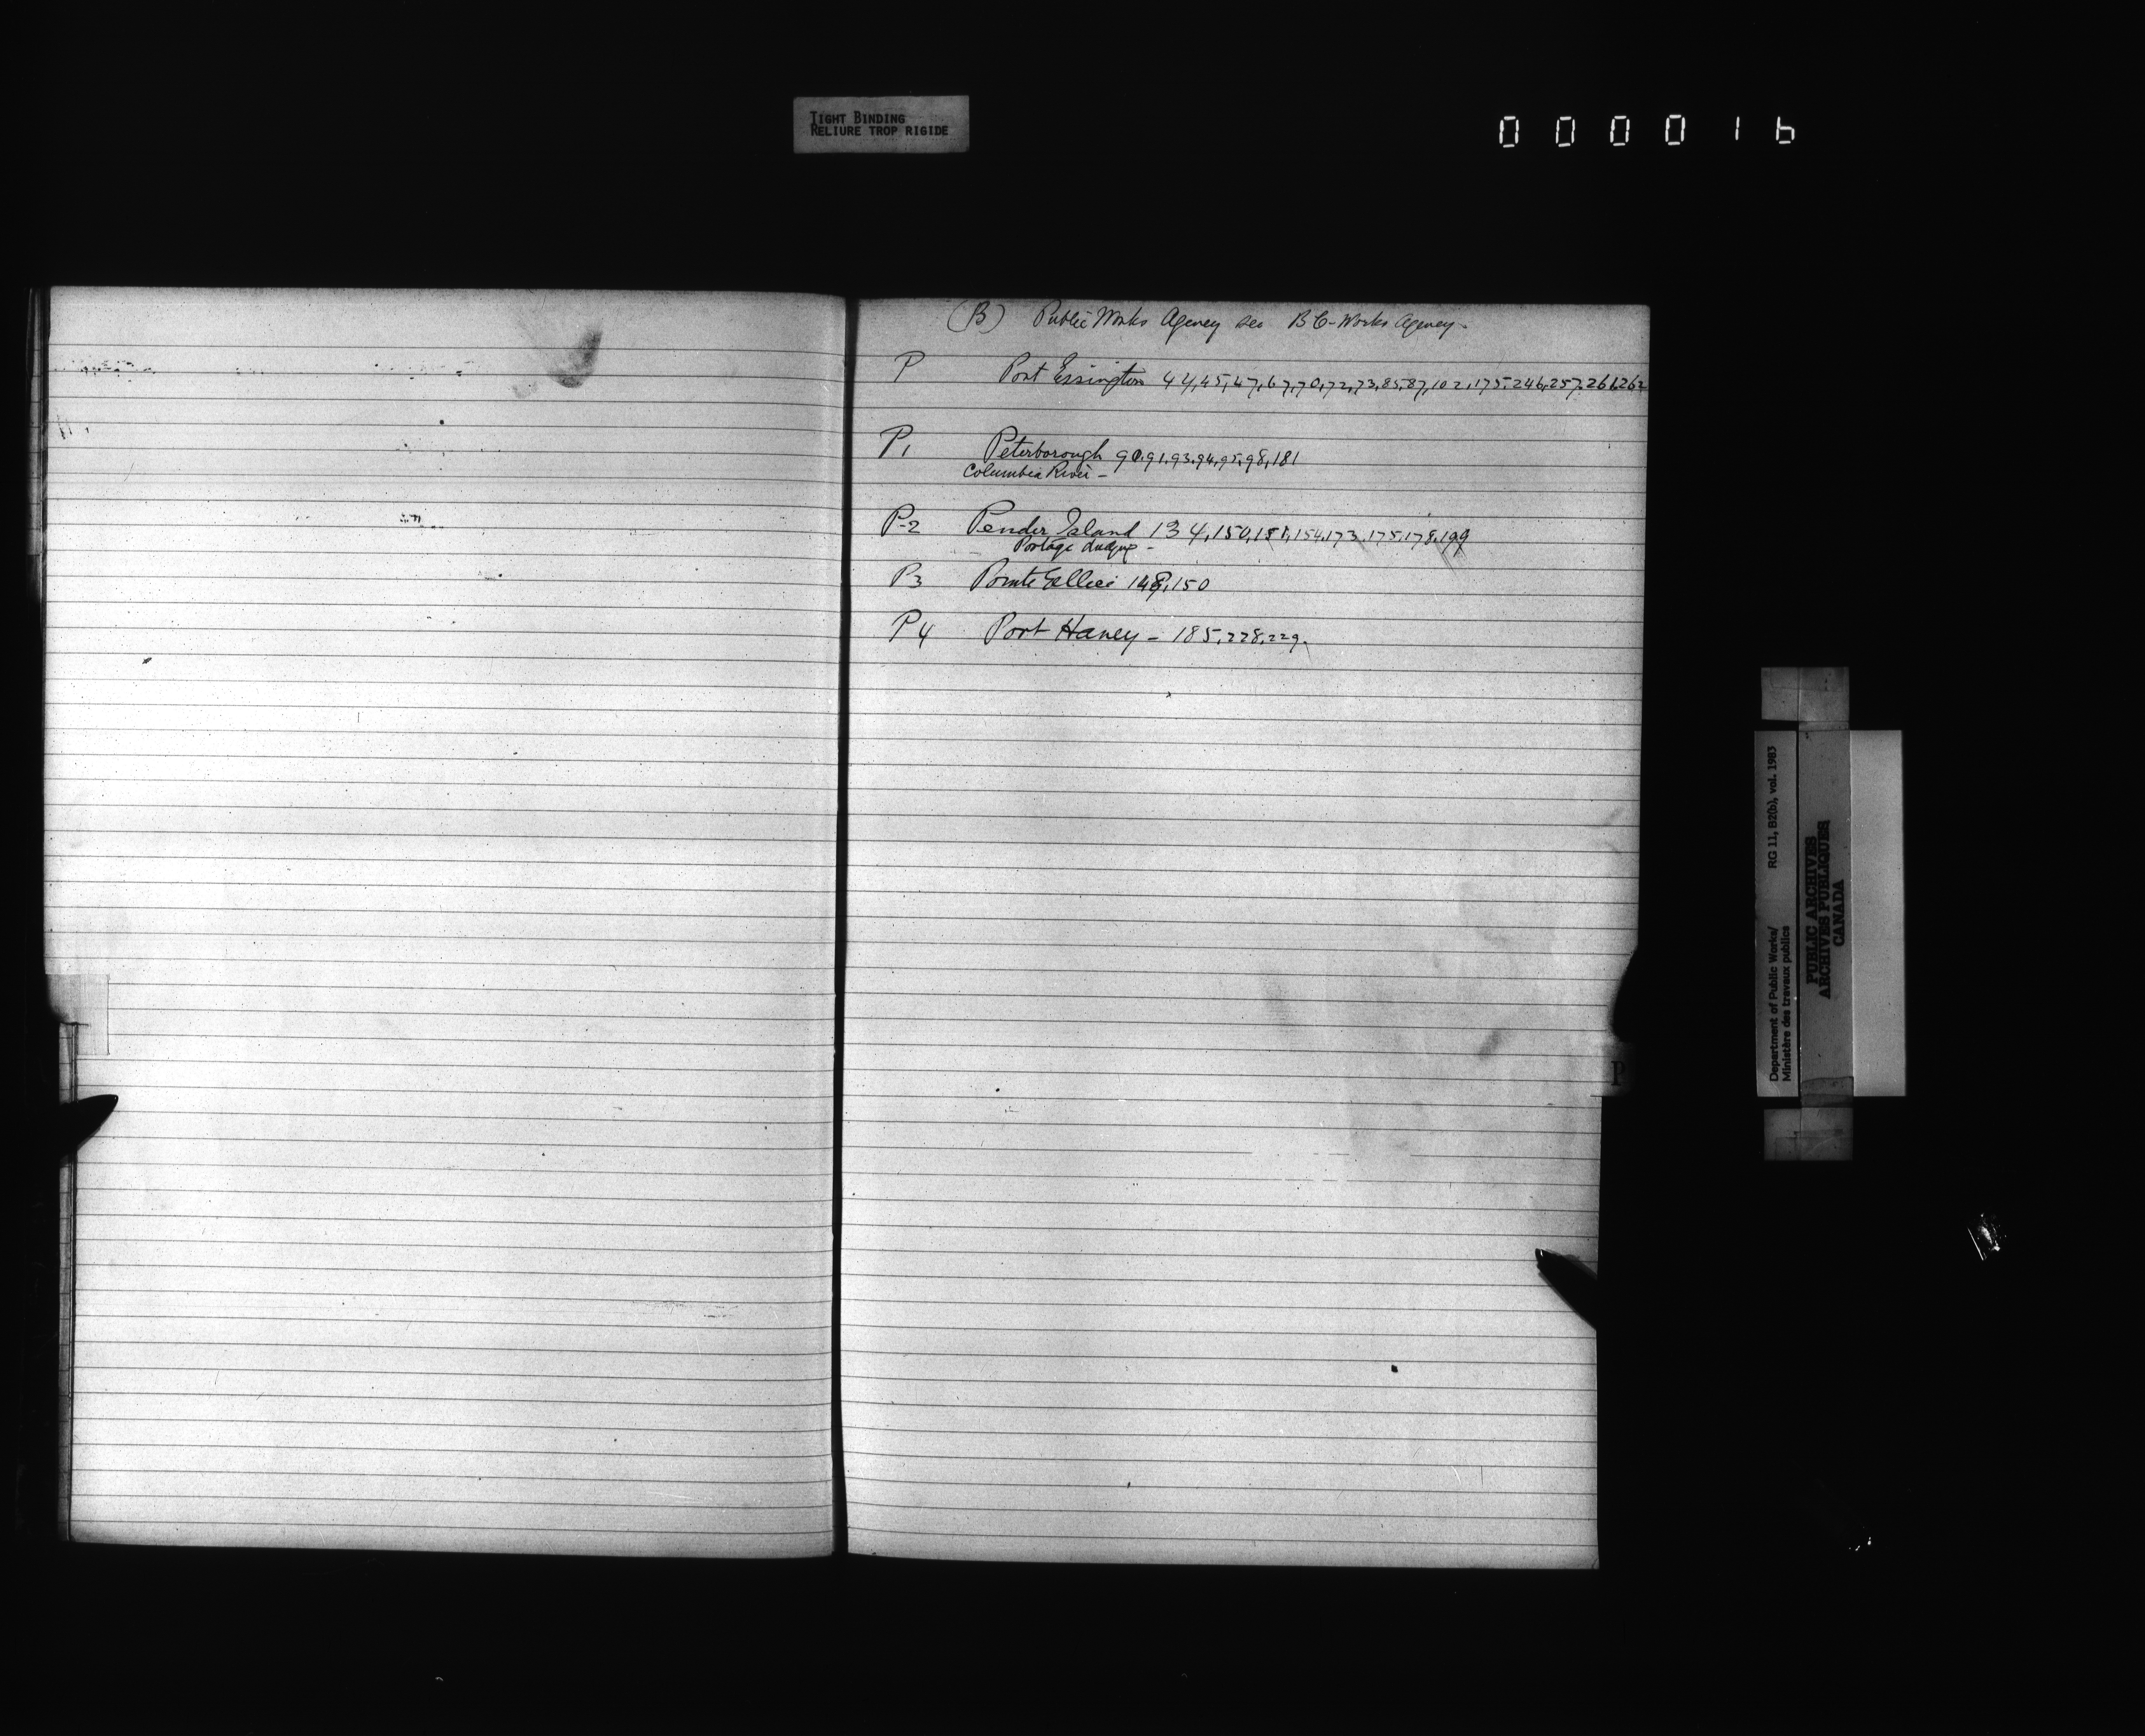 TIGHT BINDING
RELIURE TROP RIGIDE
000016
(B) Public Works Agency see BC-Works Agency-
P Port Essington 44,45,47,67,70,72,73,85,87,102,175,246,257,261,262
P1 Peterborough 90,91,93,94,95,98,181
Columbia River -
P-2 Pender Island 134,150,151,154,173,175,178,199
Portage
P3 Pointe 148,150
P4 Port Haney - 185,228,229.
P
Department of Public Works/ RG 11, B2(b), vol. 1983
Ministère des travaux publics
PUBLIC ARCHIVES
ARCHIVES PUBLIQUES
CANADA